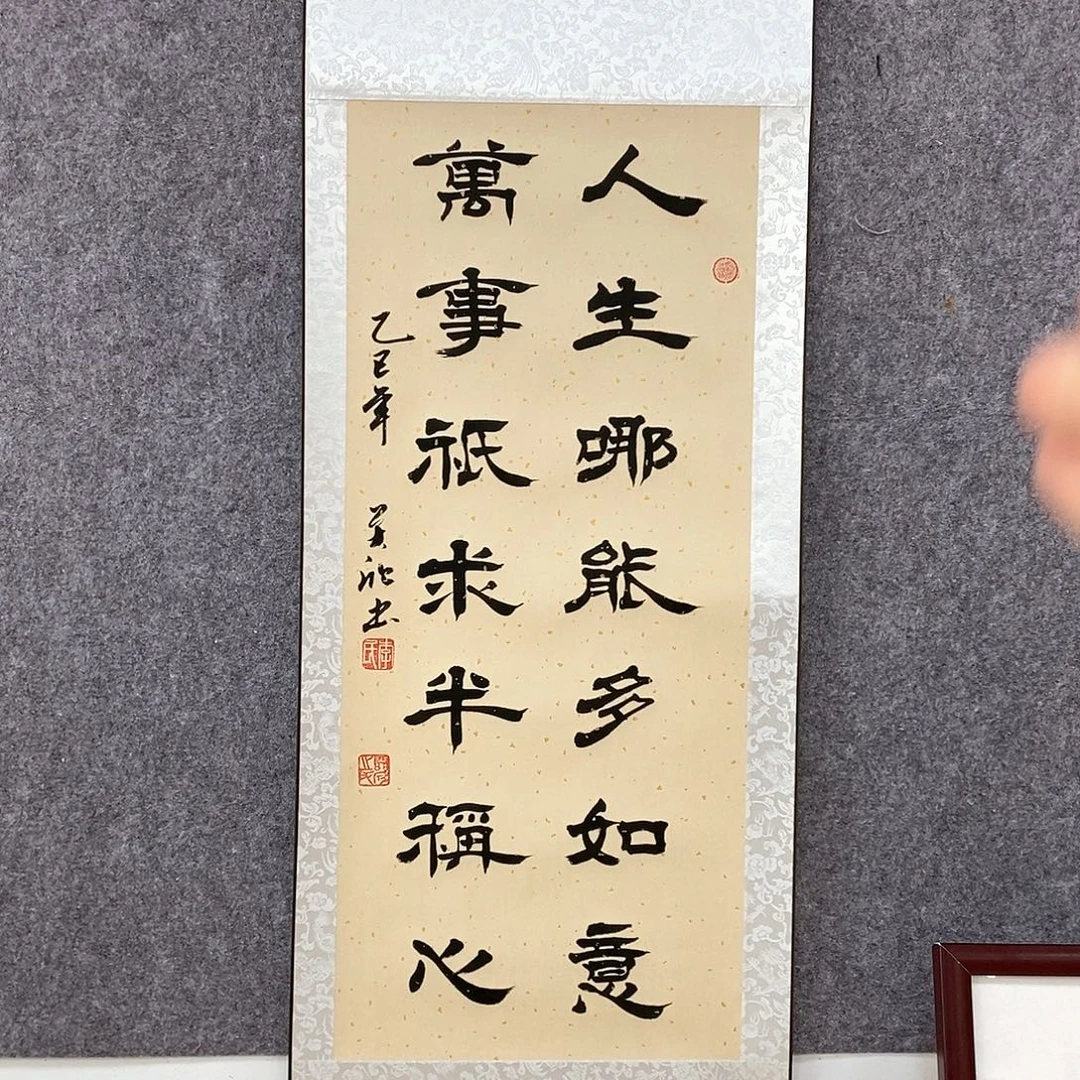 人生哪能多如意
萬事祇求半稱心
乙巳年
書